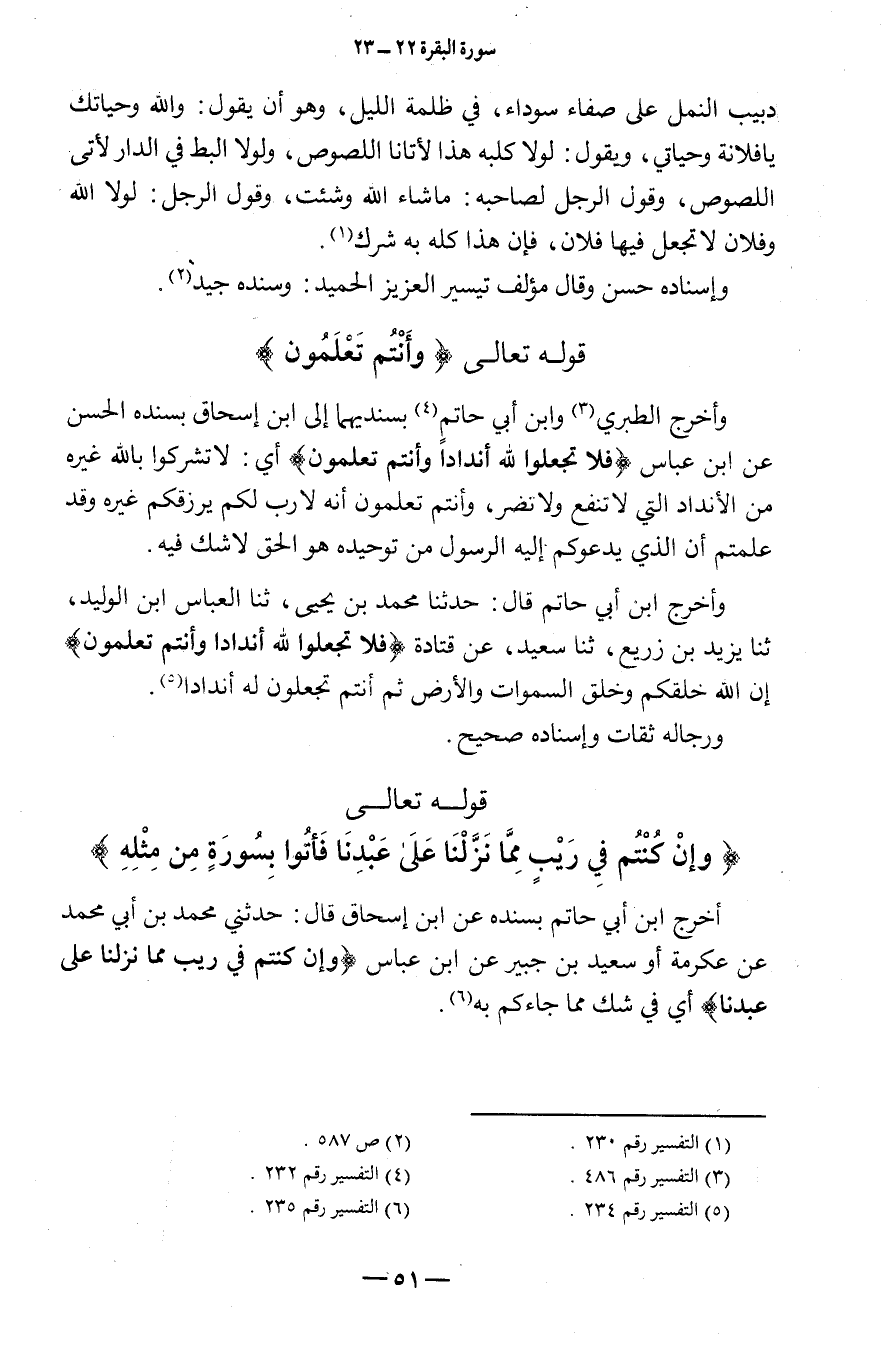 سورة البقرة ٢٢ – ٢٣
دبيب النمل على صفاء سوداء، في ظلمة الليل، وهو أن يقول: والله وحياتك
يافلانة وحياتي، ويقول: لولا كلبه هذا لأتانا اللصوص، ولولا البط في الدار لأتى
اللصوص، وقول الرجل لصاحبه: ماشاء الله وشئت، وقول الرجل: لولا الله
وفلان لاتجعل فيها فلان، فإن هذا كله به شرك(١).
وإسناده حسن وقال مؤلف تيسير العزيز الحميد: وسنده جيد(٢).
قولـه تعالـى ﴿ وأَنْتُم تَعْلَمُون ﴾
وأخرج الطبري(٣) وابن أبي حاتم(٤) بسنديهما إلى ابن إسحاق بسنده الحسن
عن ابن عباس ﴿فلا تجعلوا لله أنداداً وأنتم تعلمون﴾ أي: لاتشركوا بالله غيره
من الأنداد التي لاتنفع ولاتضر، وأنتم تعلمون أنه لارب لكم يرزقكم غيره وقد
علمتم أن الذي يدعوكم إليه الرسول من توحيده هو الحق لاشك فيه.
وأخرج ابن أبي حاتم قال: حدثنا محمد بن يحيى، ثنا العباس ابن الوليد،
ثنا يزيد بن زريع، ثنا سعيد، عن قتادة ﴿فلا تجعلوا لله أندادا وأنتم تعلمون﴾
إن الله خلقكم وخلق السموات والأرض ثم أنتم تجعلون له أندادا(٥).
ورجاله ثقات وإسناده صحيح.
قولــه تعالــى
﴿ وإنْ كُنْتُم فِي رَيْبٍ مِمَّا نَزَّلْنَا عَلَىٰ عَبْدِنَا فَأتُوا بِسُورَةٍ مِن مِثْلِهِ ﴾
أخرج ابن أبي حاتم بسنده عن ابن إسحاق قال: حدثني محمد بن أبي محمد
عن عكرمة أو سعيد بن جبير عن ابن عباس ﴿وإن كنتم في ريب مما نزلنا على
عبدنا﴾ أي في شك مما جاءكم به(٦).
(١) التفسير رقم ٢٣٠ .
(٢) ص ٥٨٧ .
(٣) التفسير رقم ٤٨٦ .
(٤) التفسير رقم ٢٣٢ .
(٥) التفسير رقم ٢٣٤ .
(٦) التفسير رقم ٢٣٥ .
— ٥١ —